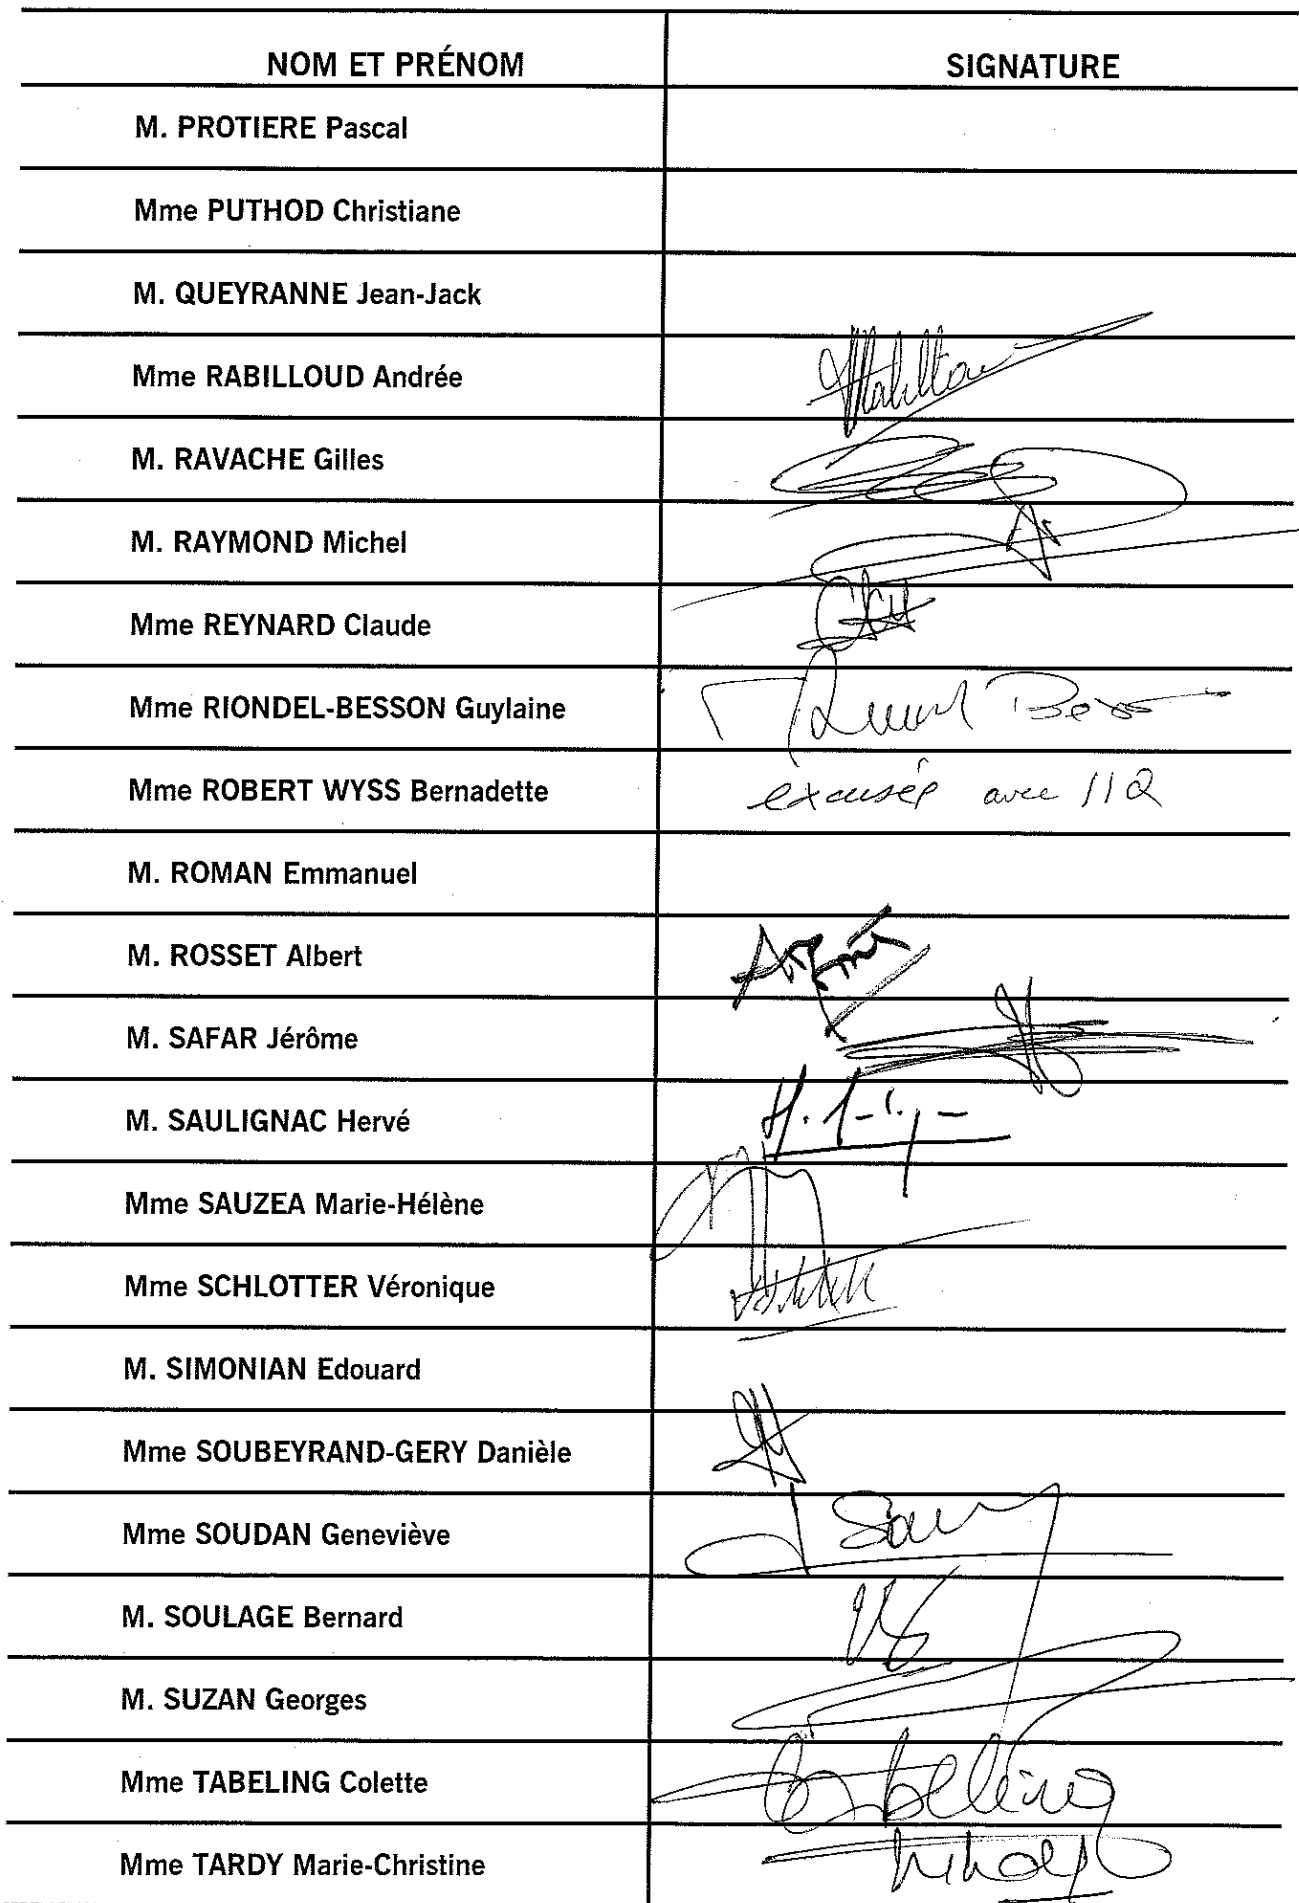 NOM ET PRÉNOM SIGNATURE
M. PROTIERE Pascal
Mme PUTHOD Christiane
M. QUEYRANNE Jean-Jack
Mme RABILLOUD Andrée
M. RAVACHE Gilles
M. RAYMOND Michel
Mme REYNARD Claude
Mme RIONDEL-BESSON Guylaine
Mme ROBERT WYSS Bernadette excusée avec
M. ROMAN Emmanuel
M. ROSSET Albert
M. SAFAR Jérôme
M. SAULIGNAC Hervé
Mme SAUZEA Marie-Hélène
Mme SCHLOTTER Véronique
M. SIMONIAN Edouard
Mme SOUBEYRAND-GERY Danièle
Mme SOUDAN Geneviève
M. SOULAGE Bernard
M. SUZAN Georges
Mme TABELING Colette
Mme TARDY Marie-Christine